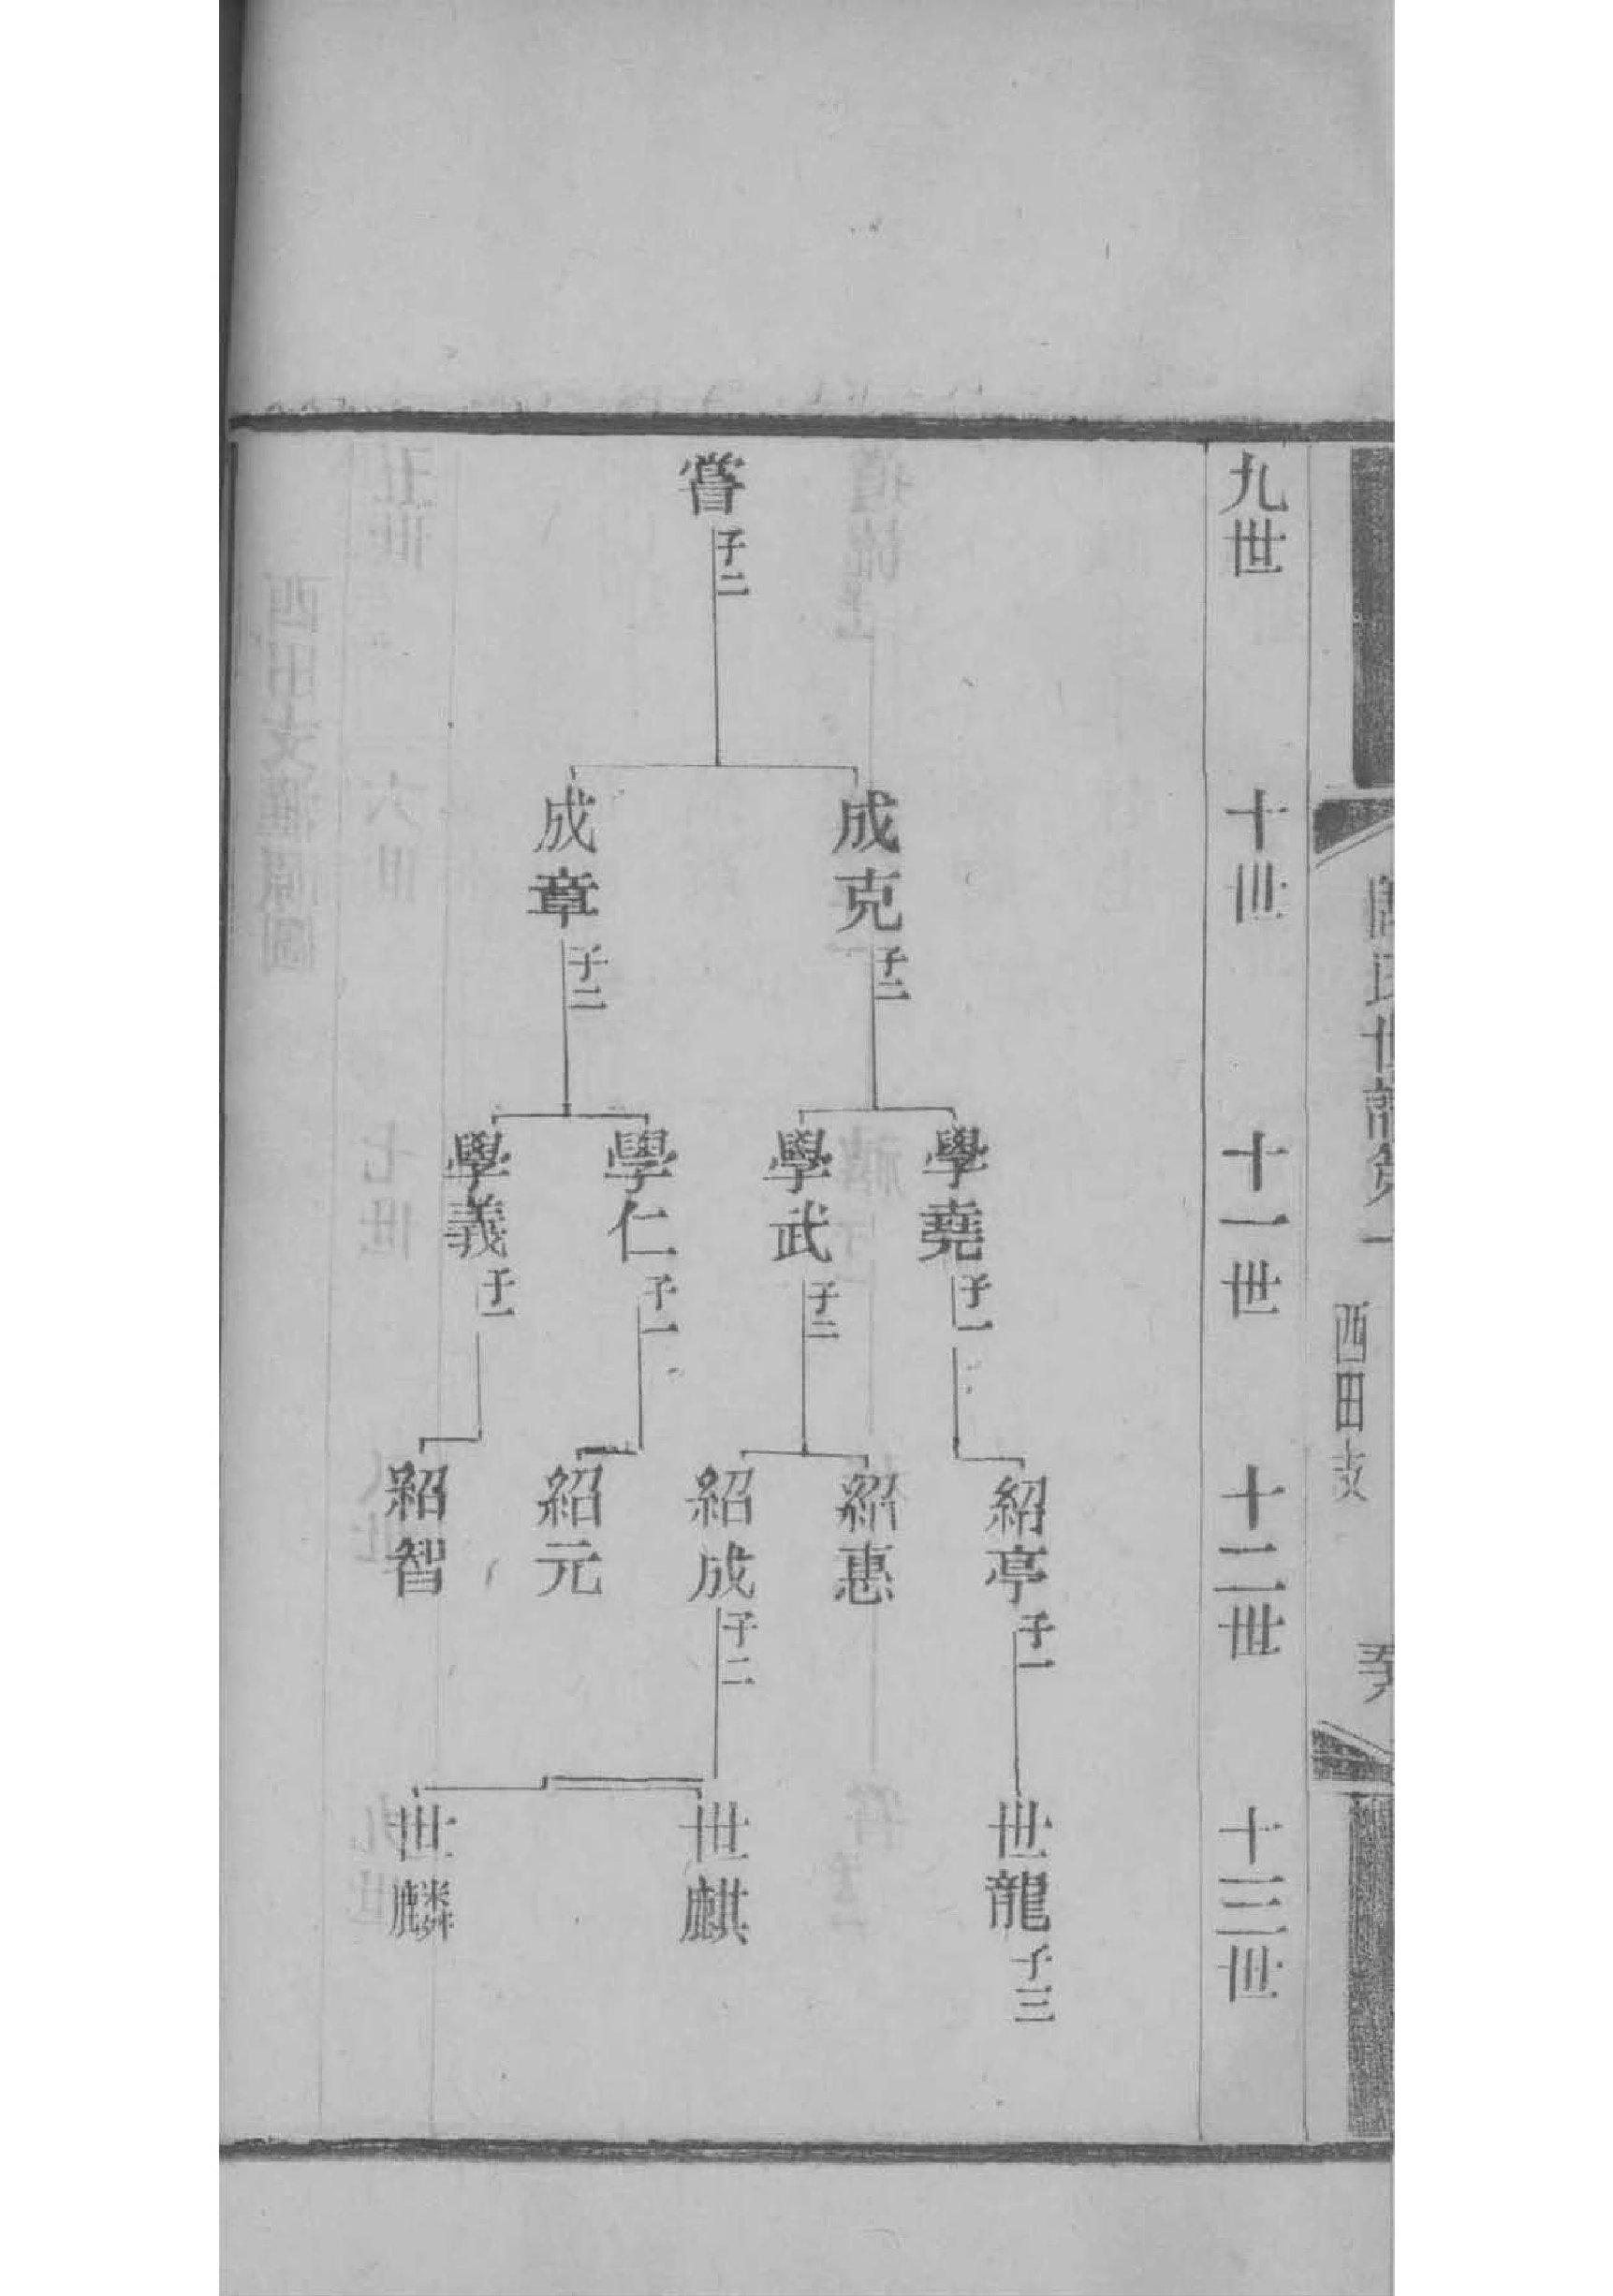 西田支
九世
十世
十一世
十二世
十三世
嘗 子二
成克 子二
成章 子二
學堯 子一
學武 子二
學仁 子一
學義 子一
紹亭 子一
紹惠
紹成 子二
紹元
紹智
世龍 子三
世麒
世麟